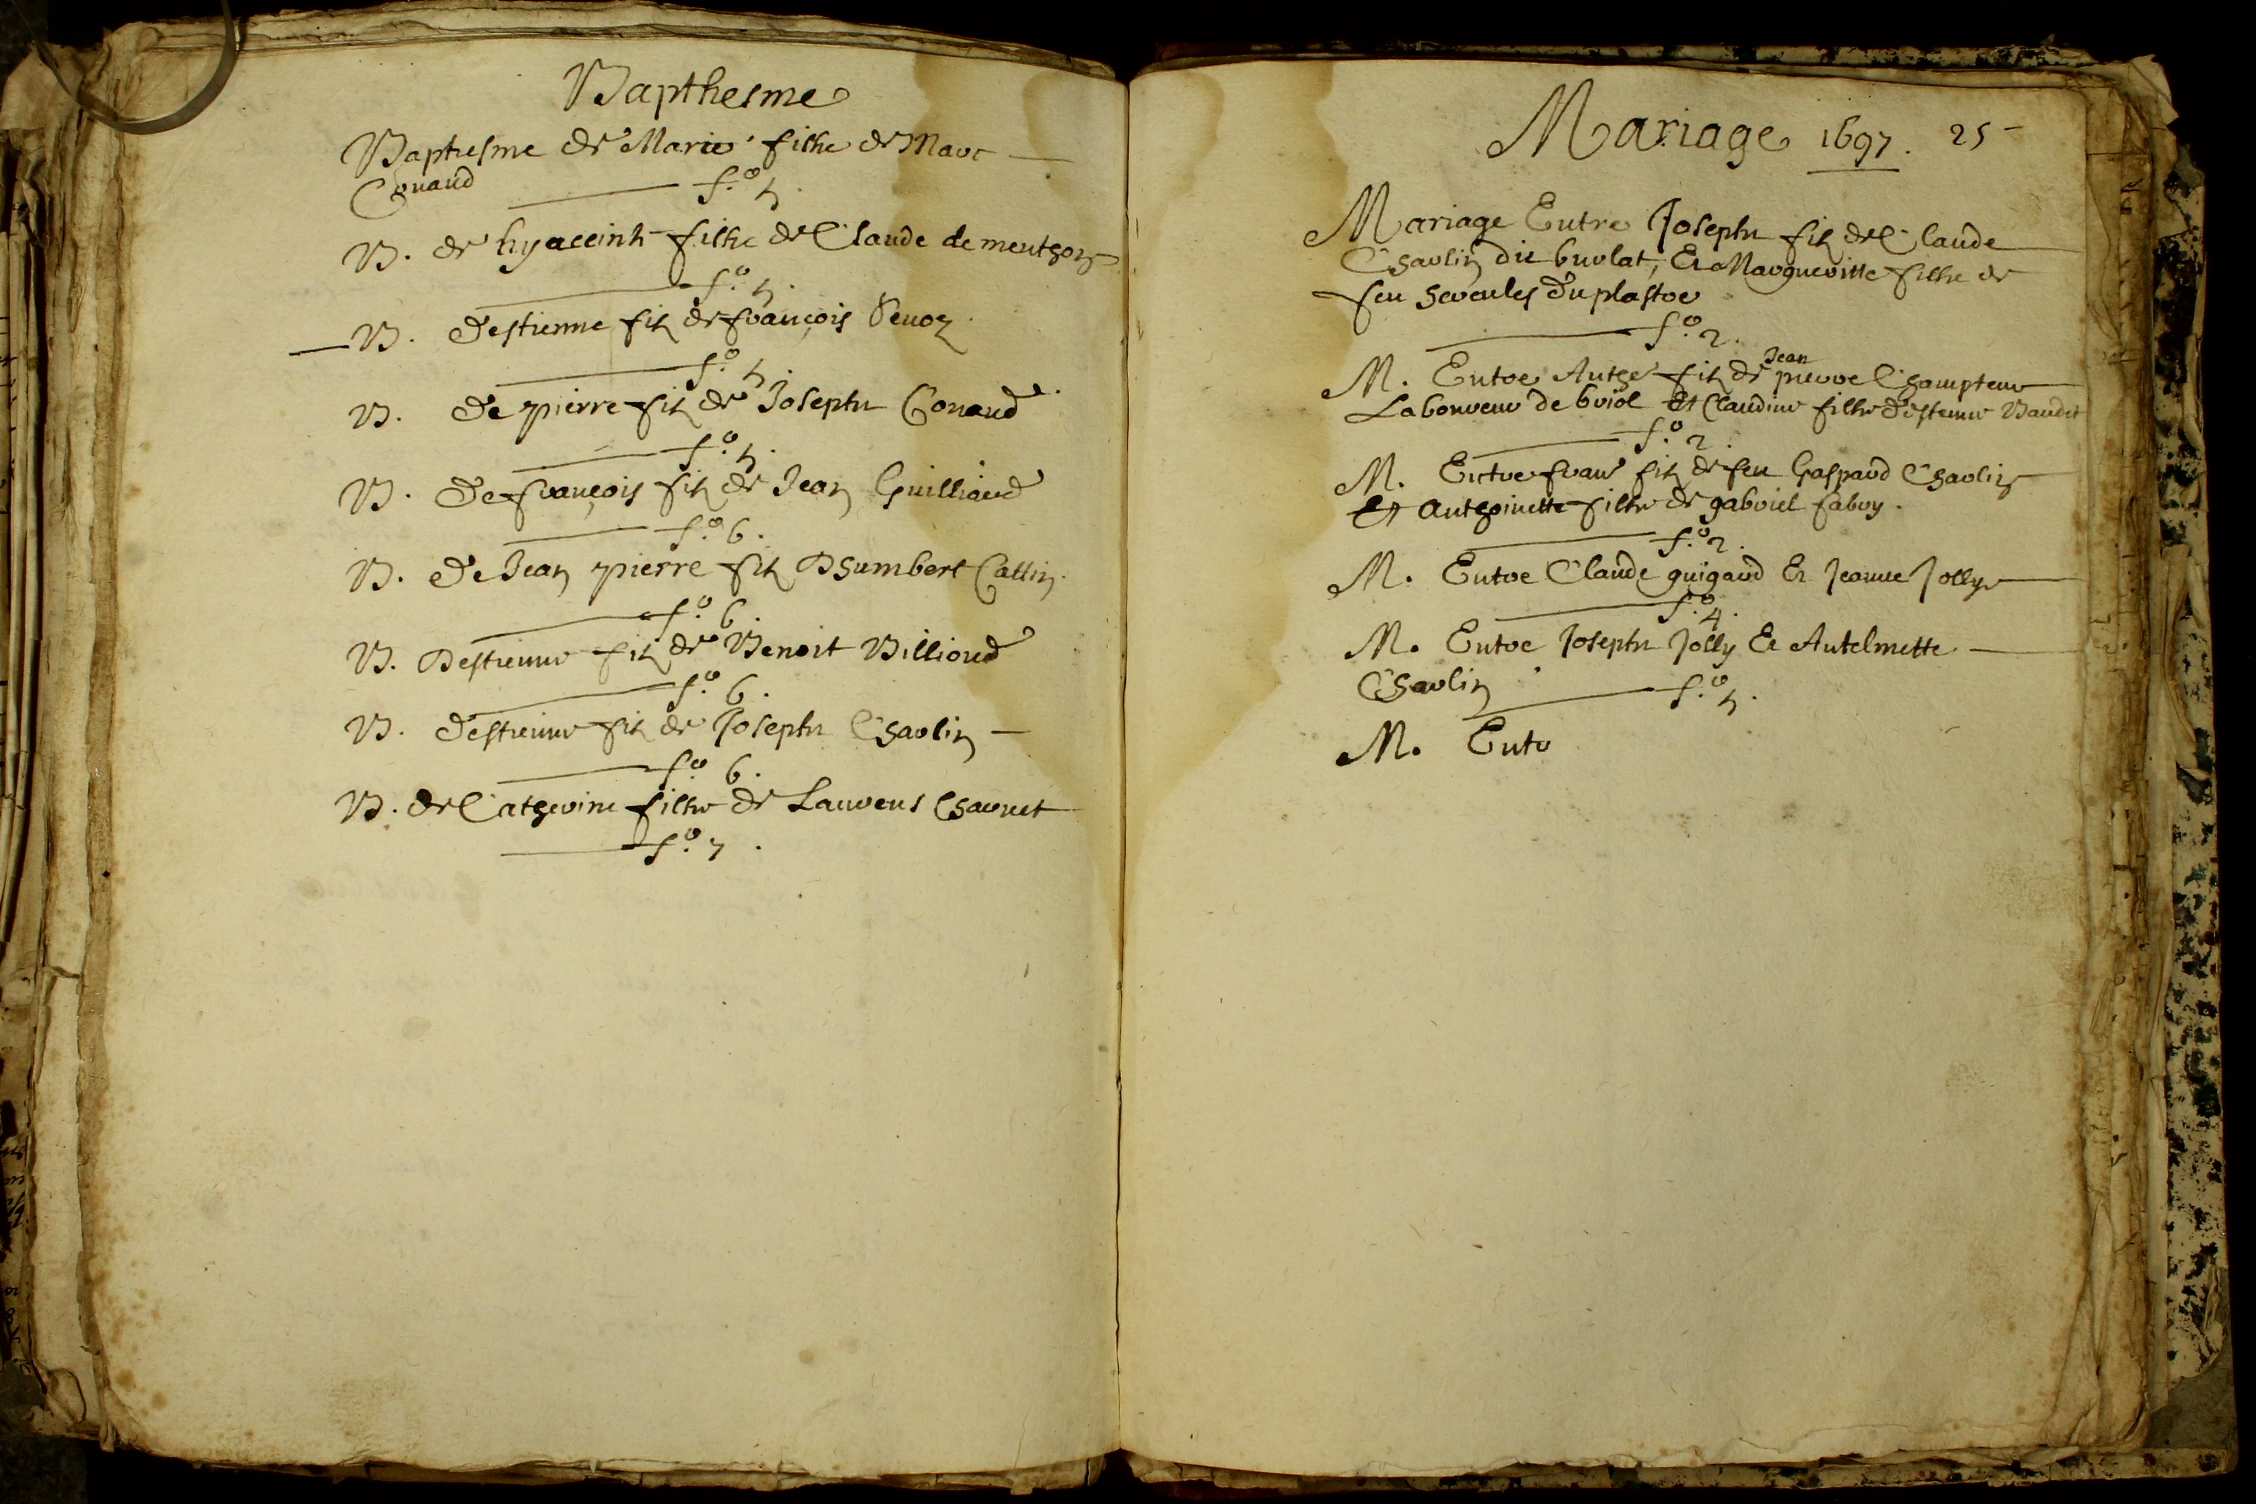 Bapthesme
Baptesme de Marie fille de Marc
Conand
f.o 5.
B. de hyaccinth fille de Claude de menthon
f.o 5.
B. d'estienne fils de françois
f.o 5.
B. de pierre fils de Joseph Gonand
f.o 5.
B. de françois fils de Jean Guilliand
f.o 6.
B. de Jean pierre fils d'humbert Callin
f.o 6.
B. d'estienne fils de Benoit Billioud
f.o 6.
B. d'estienne fils de Joseph Charlin
f.o 6.
B. de Catherine fille de Laurens Charuet
f.o 7.
Mariage 1697. 25
Mariage Entre Joseph fils de Claude
Charlin dit burlat, Et Margueritte fille de
feu hercules duplastre
f.o 2.
Jean
M. Entre Anthe fils de pierre Champteur
Laboureur de briol Et Claudine fille d'estienne Baudet
f.o 2.
M. Entre franc fils de feu Gaspard Charlin
Et Anthoinette fille de gabriel fabry.
f.o 2.
M. Entre Claude guigard Et Jeanne Jolly
f.o 4.
M. Entre Joseph Jolly Et Antelmette
Charlin
f.o 5.
M. Entr